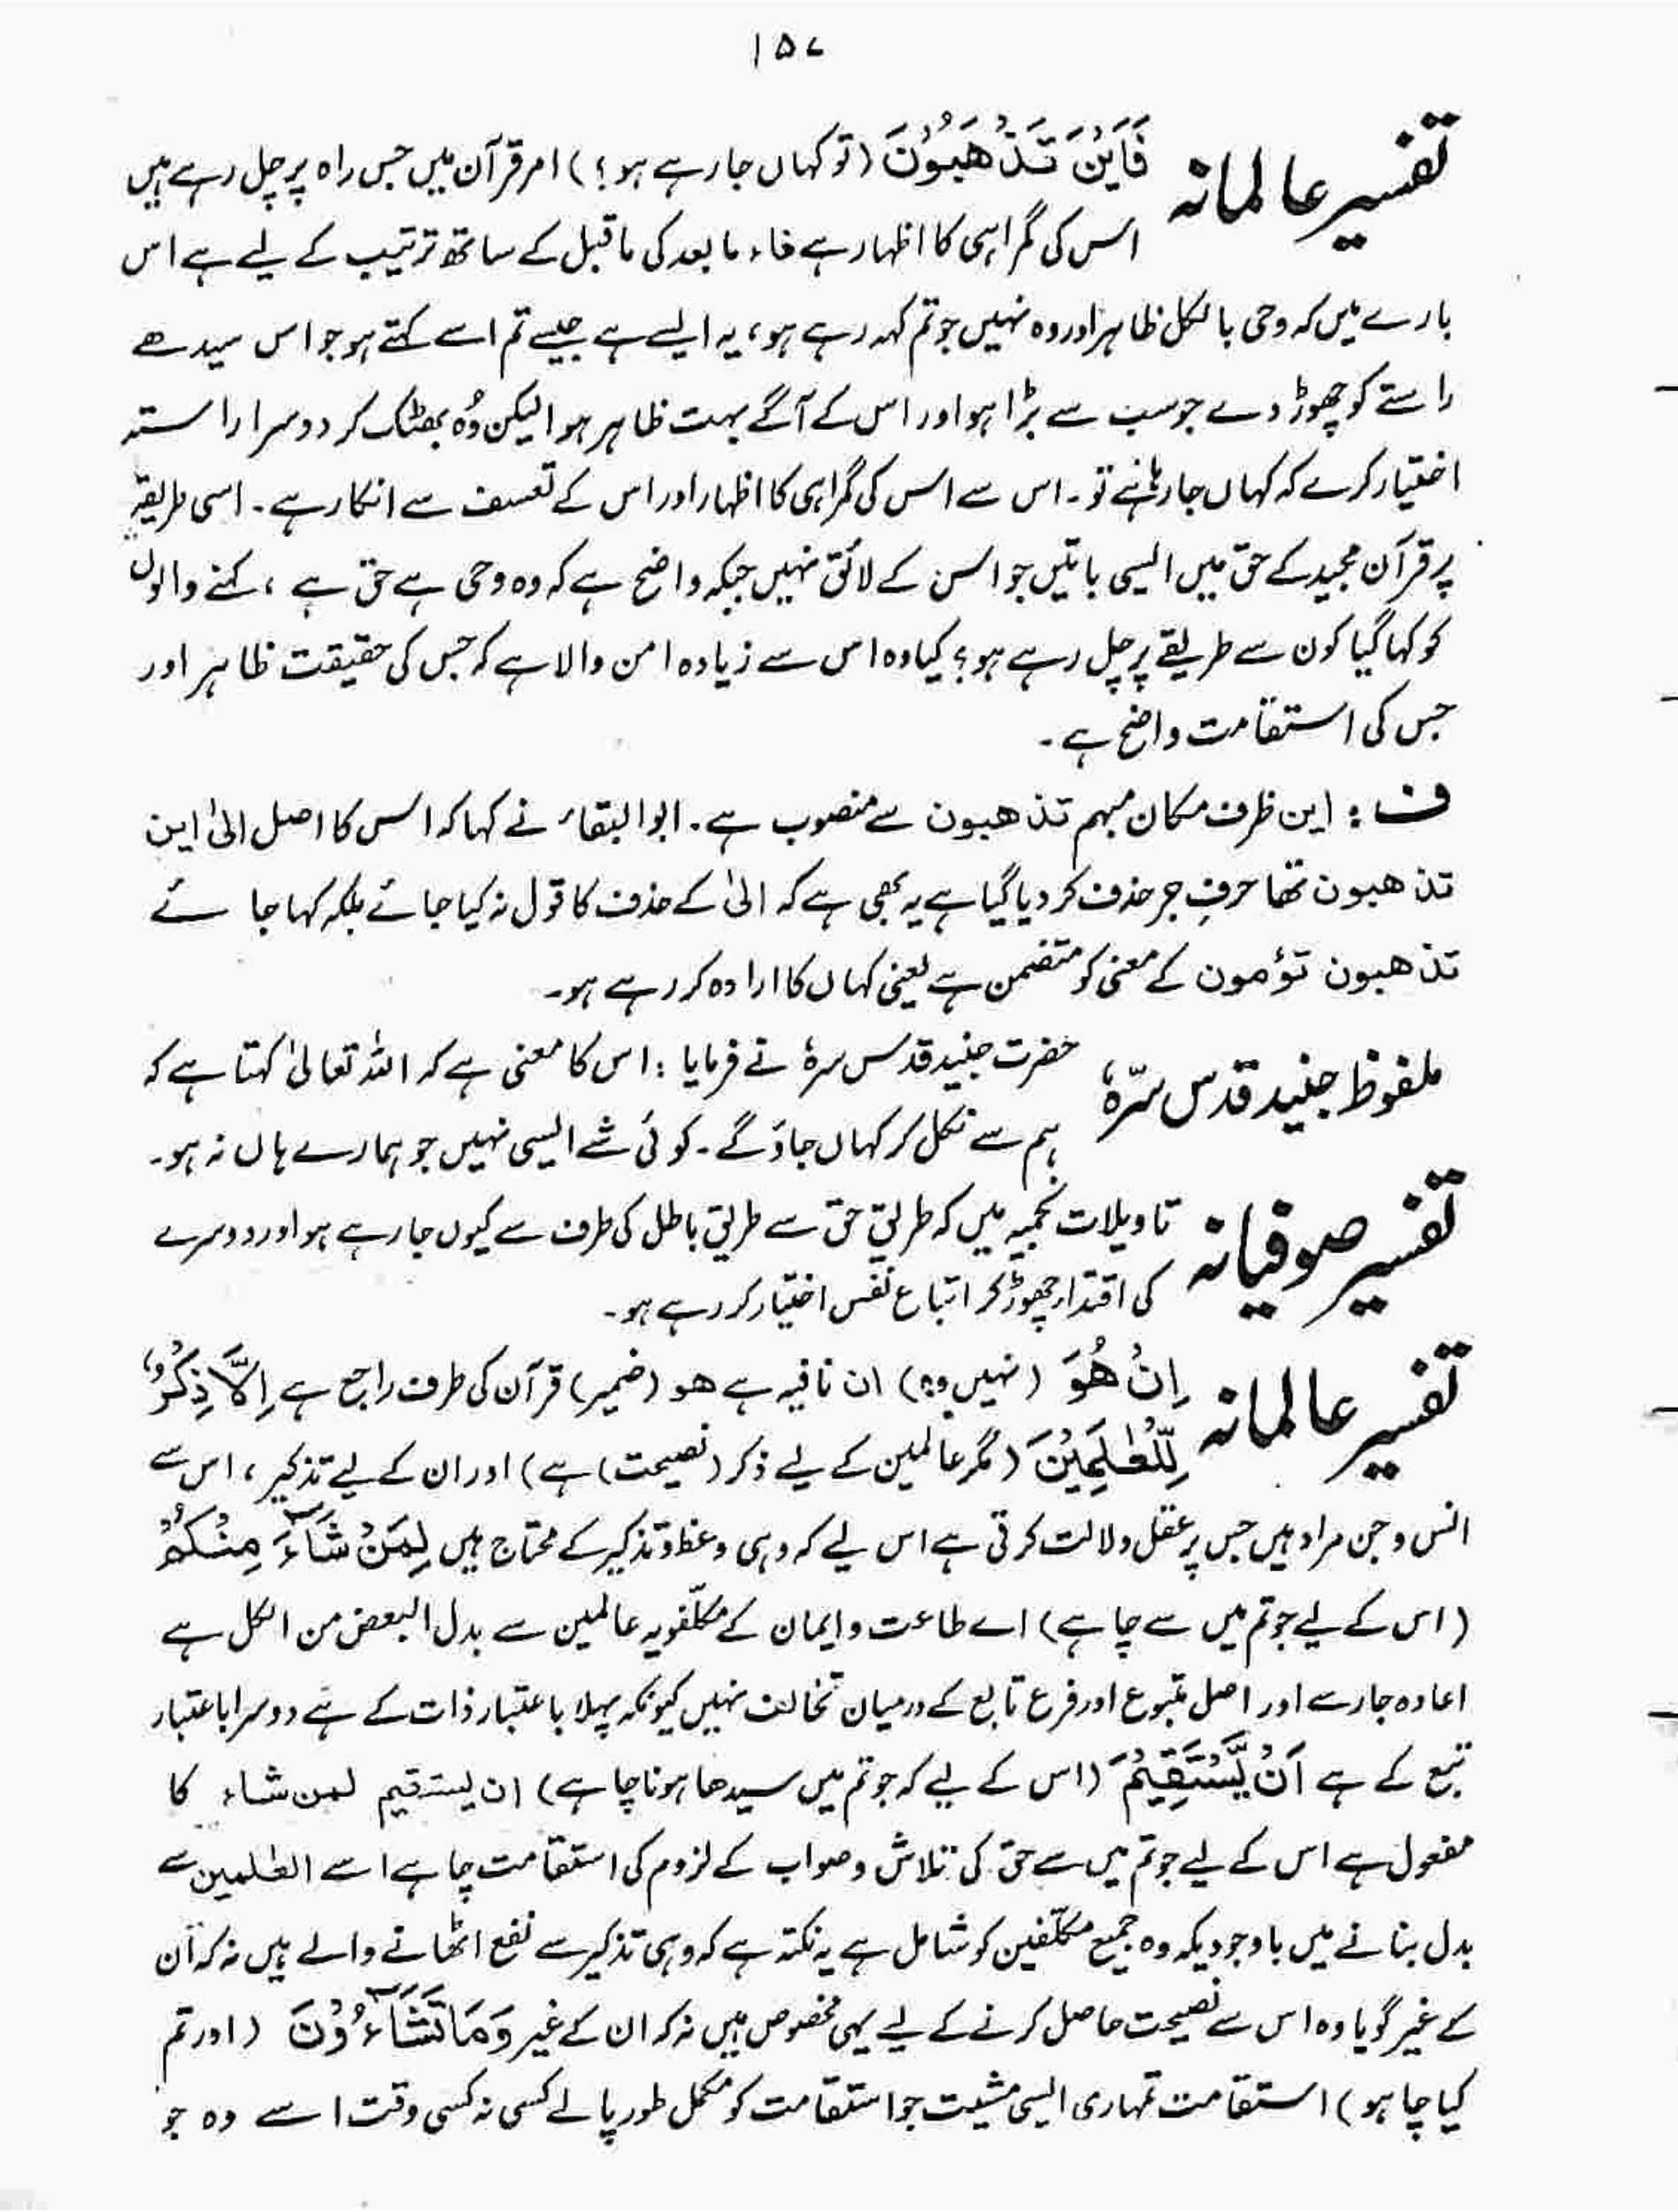 ۱۵۷
تفسیر عالمانہ فَاَیْنَ تَذْهَبُوْنَ (تو کہاں جارہے ہو؟) امر قرآن میں جس راہ پر چل رہے ہیں
اس کی گمراہی کا اظہار ہے فاء مابعد کی ماقبل کے ساتھ ترتیب کے لیے ہے اس
بارے میں کہ وحی بالکل ظاہر اور وہ نہیں جو تم کہہ رہے ہو، یہ ایسے ہے جیسے تم اسے کہتے ہو جو اس سیدھے
راستے کو چھوڑ دے جو سب سے بڑا ہو اور اس کے آگے بہت ظاہر ہو لیکن وُہ بھٹک کر دوسرا راستہ
اختیار کرے کہ کہاں جارہا ہے تو۔ اس سے اس کی گمراہی کا اظہار اور اس کے تعسف سے انکار ہے۔ اسی طریقہ
پر قرآن مجید کے حق میں ایسی باتیں جو اس کے لائق نہیں جبکہ واضح ہے کہ وہ وحی ہے حق ہے، کہنے والوں
کو کہا گیا کون سے طریقے پر چل رہے ہو؟ کیا وہ اس سے زیادہ امن والا ہے کہ جس کی حقیقت ظاہر اور
جس کی استقامت واضح ہے۔
ف : این ظرف مکان مبہم تذھبون سے منصوب ہے۔ ابوالبقاء نے کہا کہ اس کا اصل الیٰ این
تذھبون تھا حرفِ جر حذف کر دیا گیا ہے یہ بھی ہے کہ الیٰ کے حذف کا قول نہ کیا جائے بلکہ کہا جائے
تذھبون تؤمون کے معنی کو متضمن ہے یعنی کہاں کا ارادہ کر رہے ہو۔
ملفوظ جنید قدس سرّہٗ حضرت جنید قدس سرہٗ نے فرمایا : اس کا معنی ہے کہ اللہ تعالیٰ کہتا ہے کہ
ہم سے نکل کر کہاں جاؤ گے۔ کوئی شے ایسی نہیں جو ہمارے ہاں نہ ہو۔
تفسیر صوفیانہ تاویلات نجمیہ میں کہ طریقِ حق سے طریقِ باطل کی طرف سے کیوں جارہے ہو اور دوسرے
کی اقتداء چھوڑ کر اتباع نفس اختیار کر رہے ہو۔
تفسیر عالمانہ اِنْ هُوَ (نہیں وہ) ان نافیہ ہے ھو (ضمیر) قرآن کی طرف راجع ہے اِلَّا ذِكْرٌ
لِّلْعٰلَمِیْنَ (مگر عالمین کے لیے ذکر (نصیحت) ہے) اور ان کے لیے تذکیر، اس سے
انس و جن مراد ہیں جس پر عقل دلالت کرتی ہے اس لیے کہ وہی وعظ و تذکیر کے محتاج ہیں لِمَنْ شَآءَ مِنْكُمْ
(اس کے لیے جو تم میں سے چاہے) اے طاعت و ایمان کے مکلّفو یہ عالمین سے بدل البعض من الکل ہے
اعادہ جار سے اور اصل متبوع اور فرع تابع کے درمیان تخالف نہیں کیونکہ پہلا باعتبار ذات کے ہے دوسرا باعتبار
تبع کے ہے اَنْ یَّسْتَقِیْمَ (اس کے لیے کہ جو تم میں سیدھا ہونا چاہے) ان یستقیم لمن شاء کا
مفعول ہے اس کے لیے جو تم میں سے حق کی تلاش و صواب کے لزوم کی استقامت چاہے اسے العٰلمین سے
بدل بنانے میں باوجودیکہ وہ جمیع مکلّفین کو شامل ہے یہ نکتہ ہے کہ وہی تذکیر سے نفع اٹھانے والے ہیں نہ کہ ان
کے غیر گویا وہ اس سے نصیحت حاصل کرنے کے لیے یہی مخصوص ہیں نہ کہ ان کے غیر وَمَا تَشَآءُوْنَ (اور تم
کیا چاہو) استقامت تمہاری ایسی مشیت جو استقامت کو مکمل طور پالے کسی نہ کسی وقت اسے وہ جو